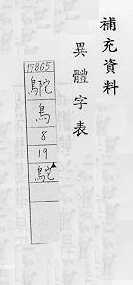 補充資料
異體字表
17865
鳥
8
19